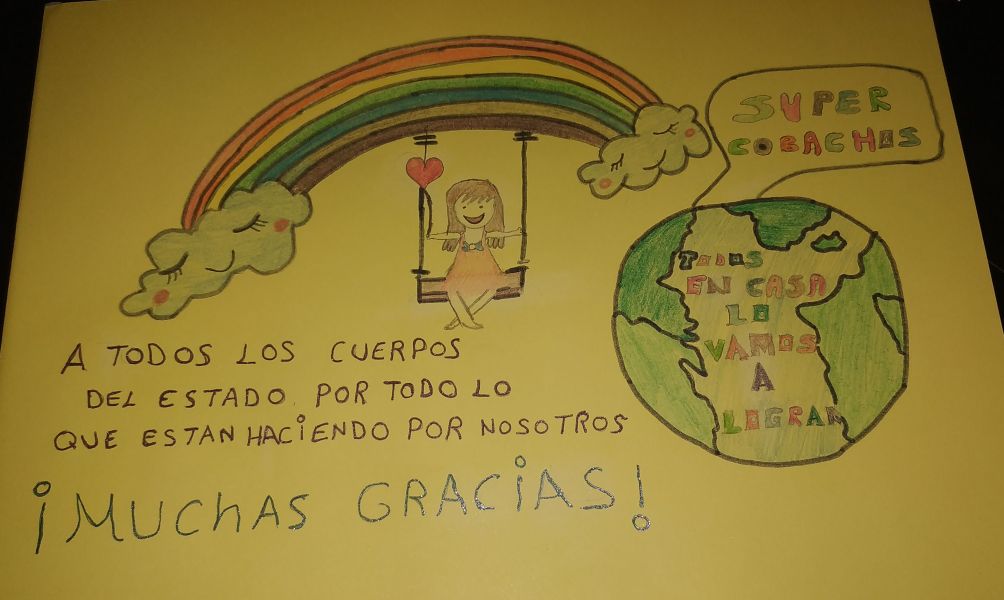 SUPER
COBACHOS
TODOS
EN CASA
LO
VAMOS
A
LOGRAR
A TODOS LOS CUERPOS
DEL ESTADO. POR TODO LO
QUE ESTAN HACIENDO POR NOSOTROS
¡MUCHAS GRACIAS!